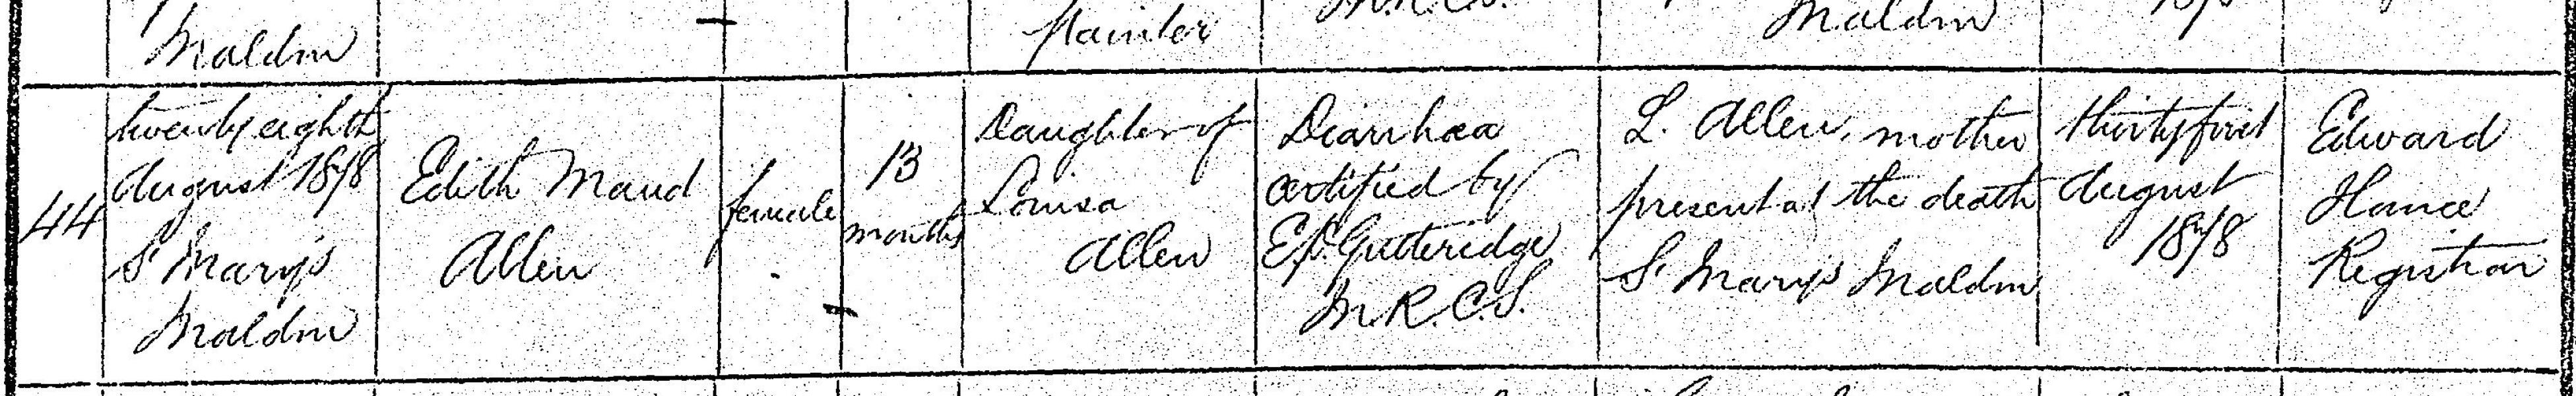 Maldon
Painter
M.R.C.S.
Maldon
44
twenty eighth
August 1878
St Mary's
Maldon
Edith Maud
Allen
female
13
months
Daughter of
Louisa
Allen
Diarrhœa
certified by
Gutteridge
M.R.C.S.
L. Allen, mother
present at the death
St Mary's Maldon
thirty first
August
1878
Edward
Hance
Registrar